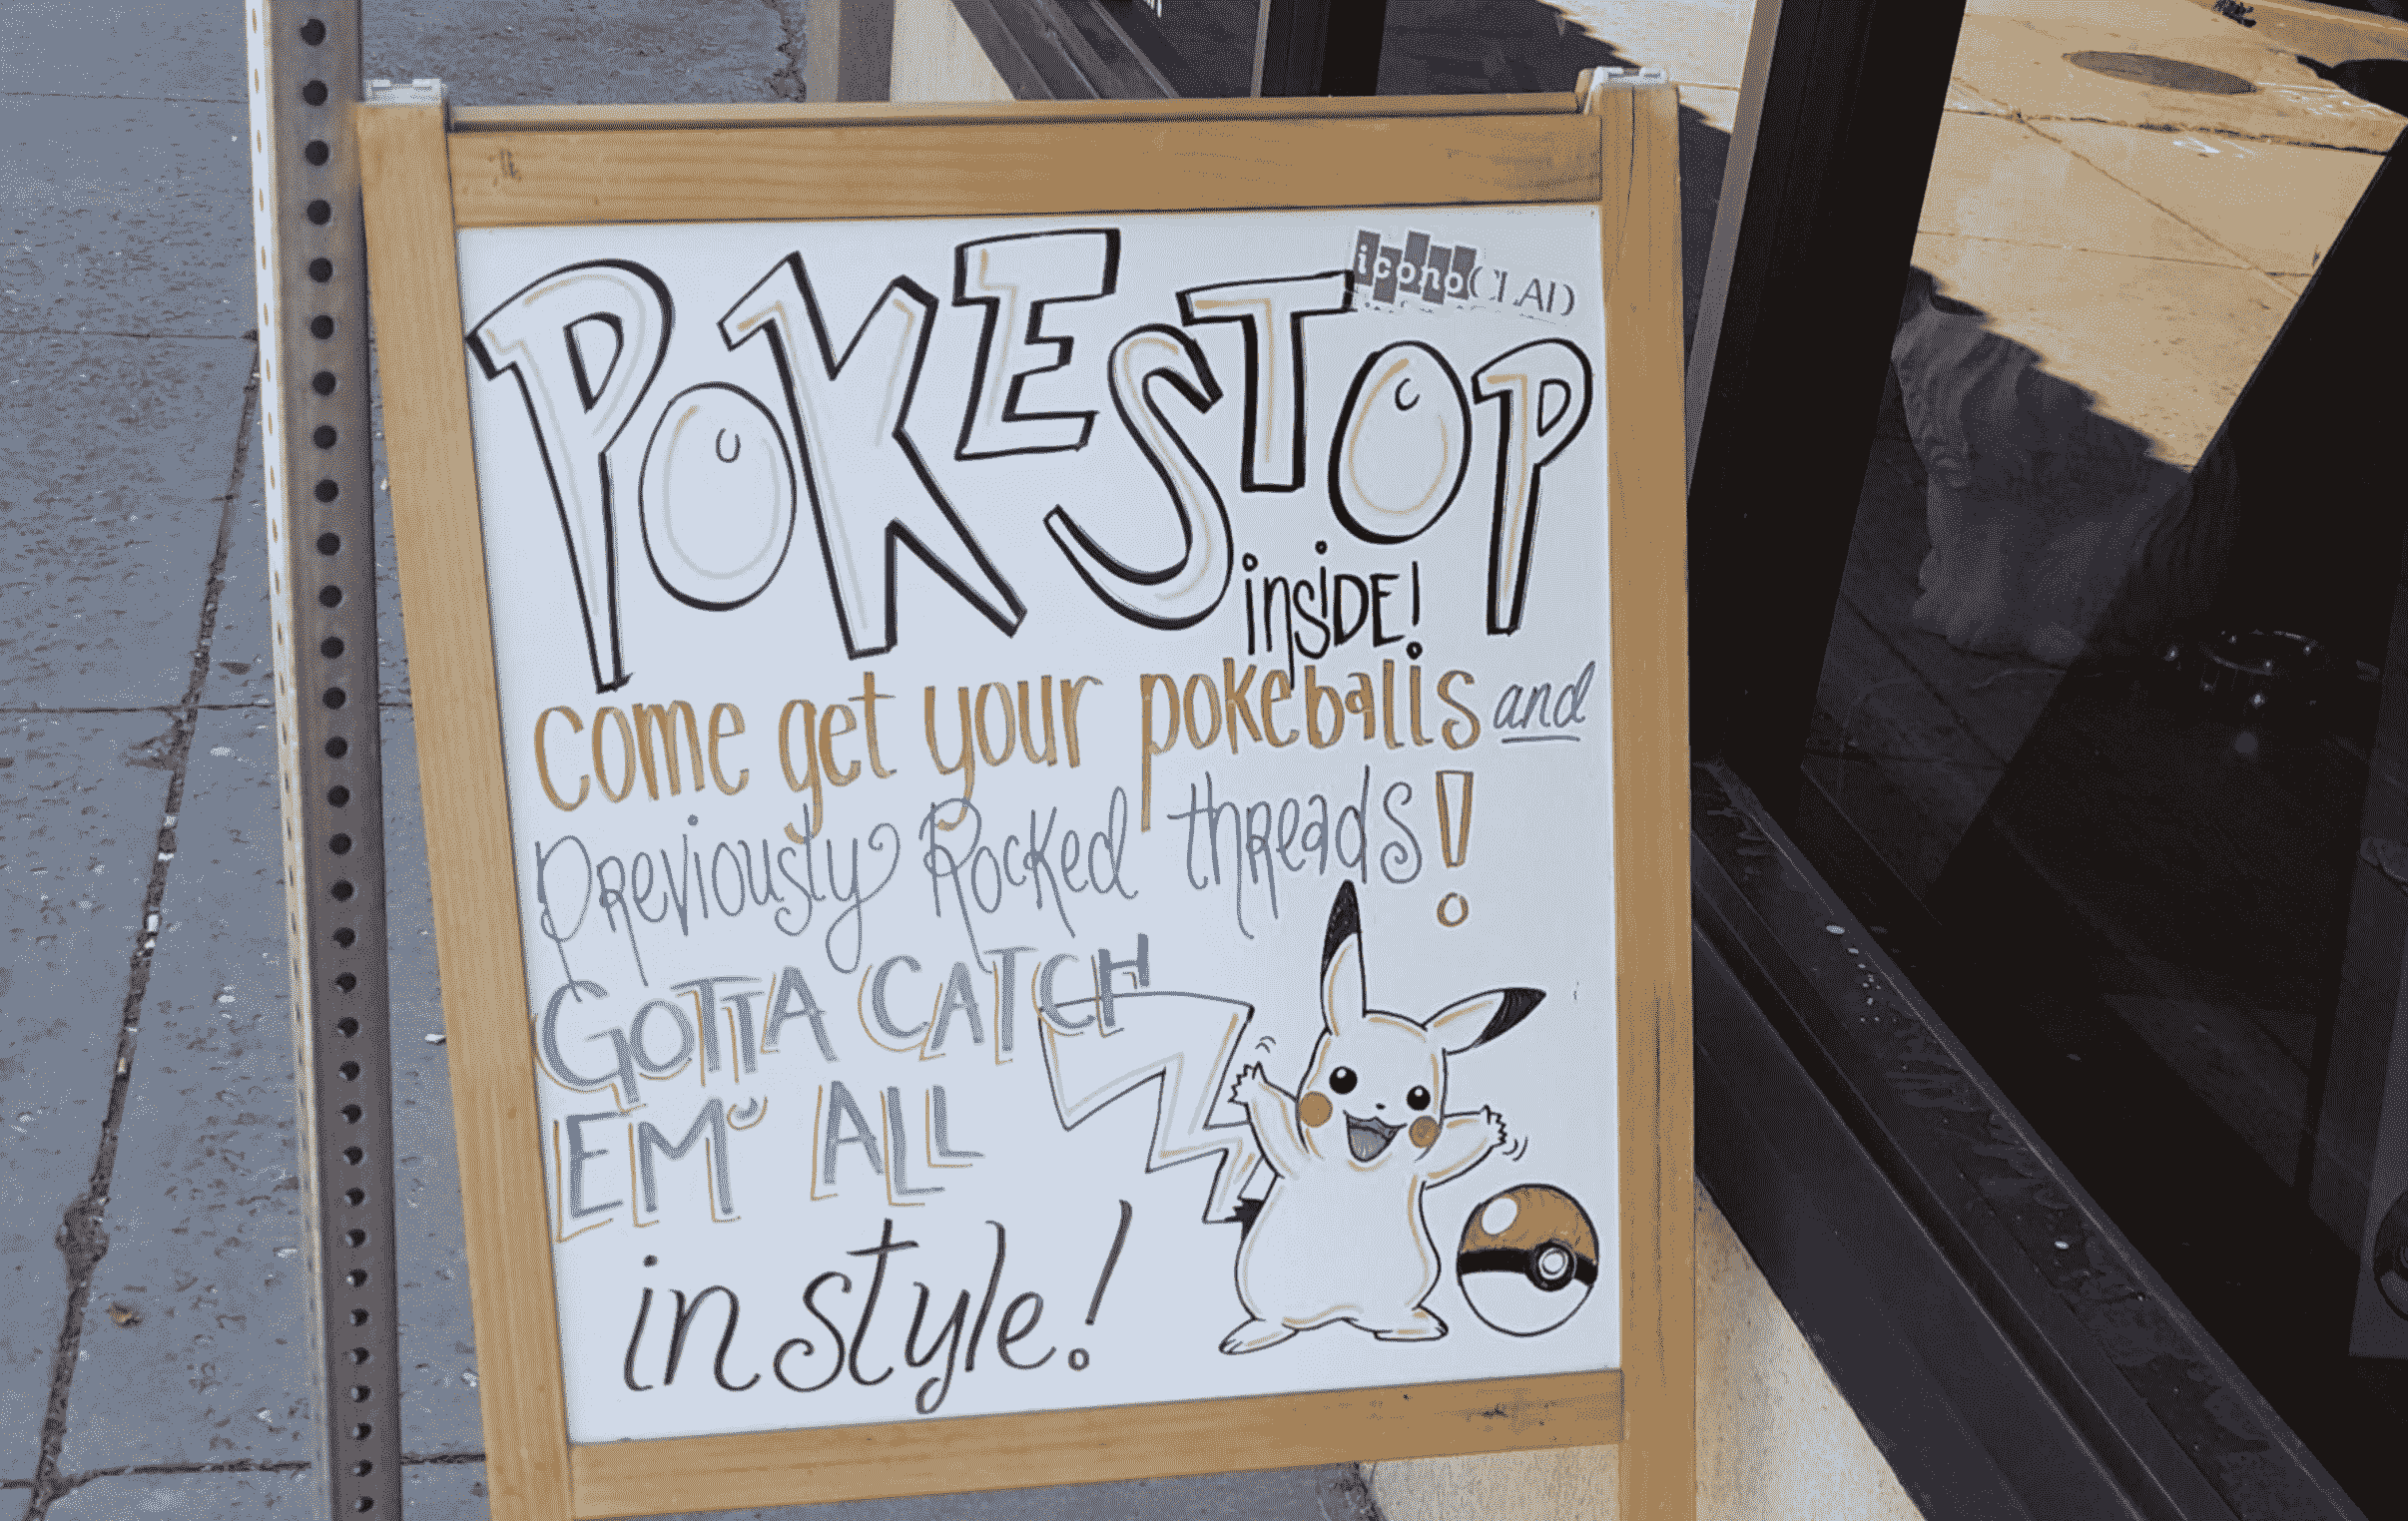 iconoCLAD
POKESTOP
insiDE!
come get your pokeballs and
Previously Rocked threads!
GOTTA CATCH
EM' ALL
in style!